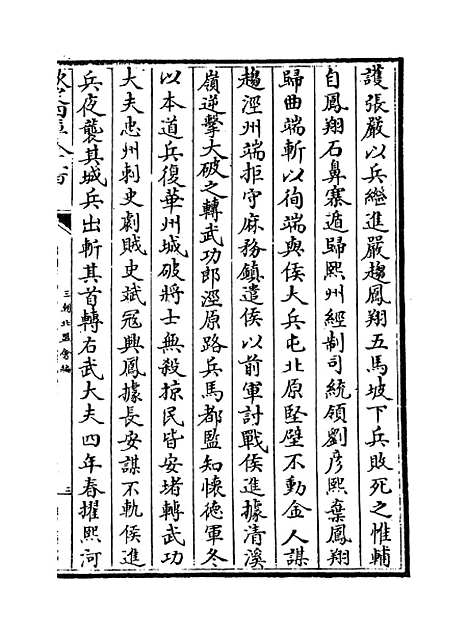 護張嚴以兵繼進嚴趨鳳翔五馬坡下兵敗死之惟輔
自鳳翔石鼻寨遁歸熙州經制司統領劉彦熙棄鳳翔
歸曲端斬以徇端與侯大兵屯北原堅壁不動金人謀
趨涇州端拒守麻務鎮遣侯以前軍討戰侯進據清溪
嶺逆擊大破之轉武功郎涇原路兵馬都監知懷德軍冬
以本道兵復華州城破將士無殺掠民皆安堵轉武功
大夫忠州刺史劇賊史斌冦興鳳據長安謀不軌侯進
兵夜襲其城兵出斬其首轉右武大夫四年春擢熙河
三朝北盟會編
三